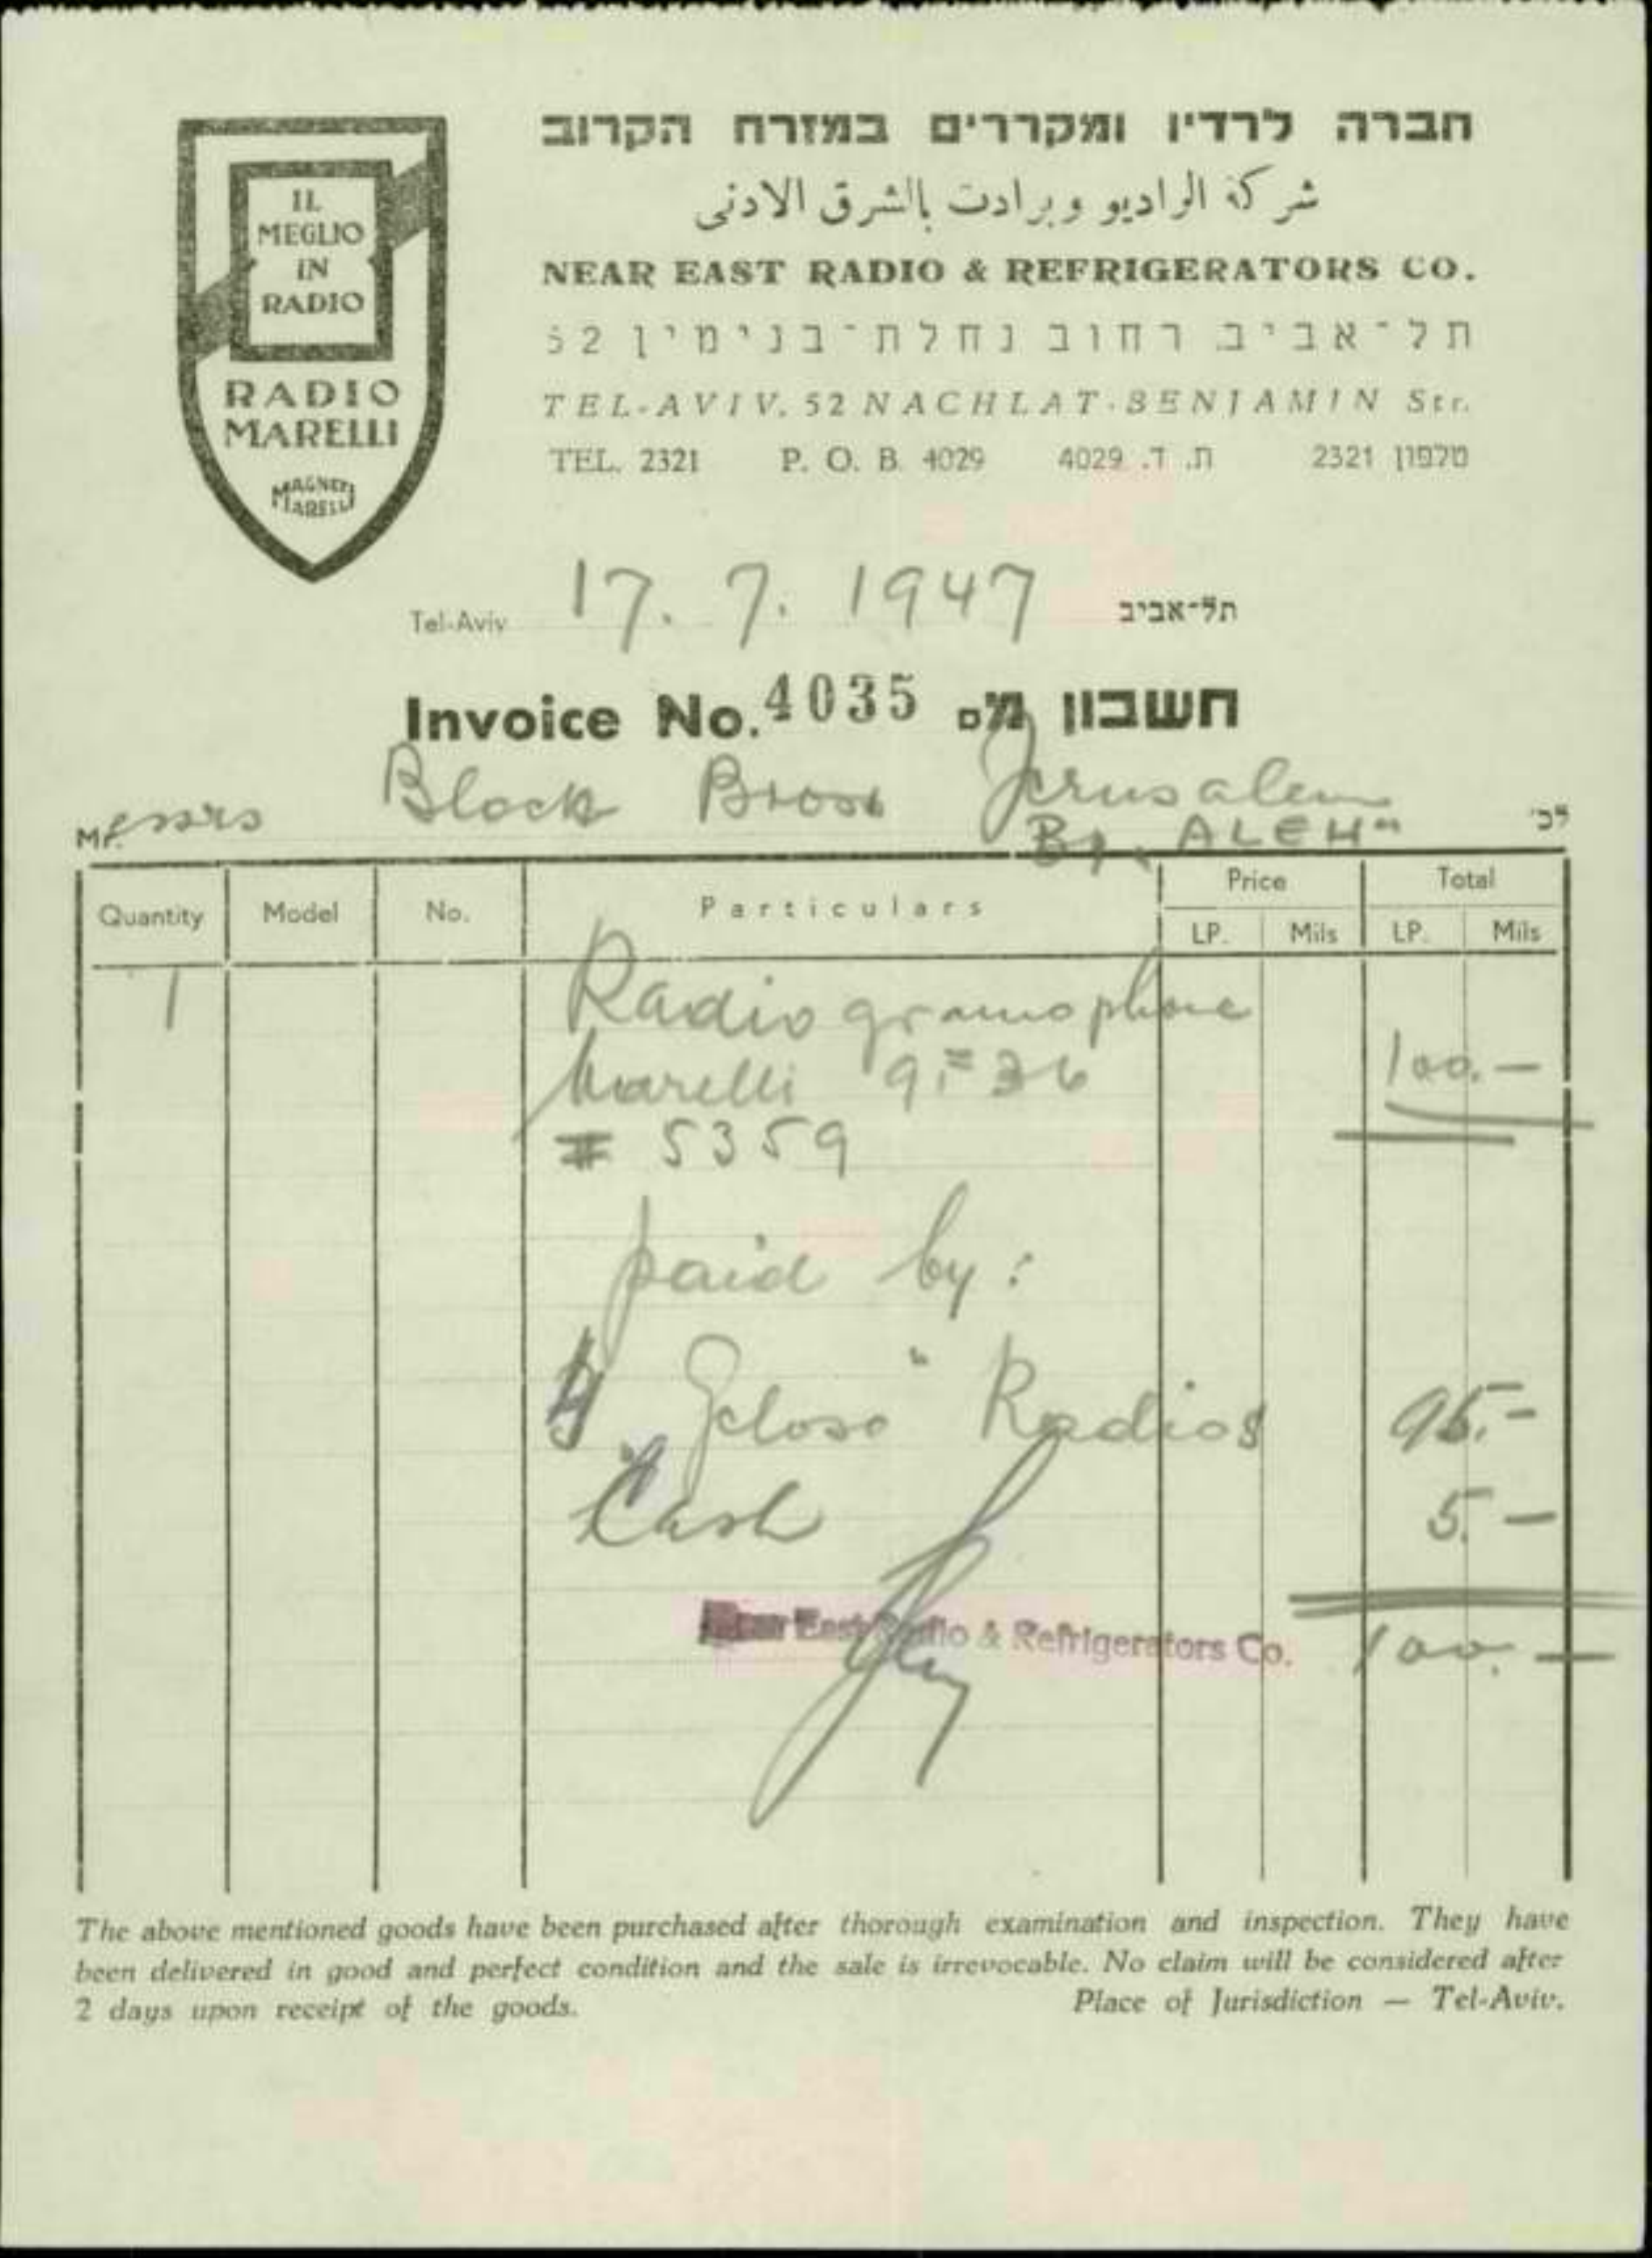 חברה לרדיו ומקררים במזרח הקרוב
شركة الراديو وبرادت بالشرق الادنى
NEAR EAST RADIO & REFRIGERATORS CO.
תל-אביב רחוב נחלת-בנימין 52
TEL-AVIV, 52 NACHLAT-BENJAMIN Str.
TEL. 2321 P. O. B. 4029 ת. ד. 4029 טלפון 2321
IL
MEGLIO
IN
RADIO
RADIO
MARELLI
MAGNETI
MARELLI
Tel-Aviv 17. 7. 1947 תל-אביב
Invoice No. 4035 חשבון מס
Messrs Block Bros Jerusalem לכ'
By „ALEH"
Quantity Model No. Particulars Price Total
LP. Mils LP. Mils
1 Radiogramophone
Marelli 9 = 36 100.—
# 5359
paid by:
4 „Geloso" Radios 95.—
Cash 5.—
Near East Radio & Refrigerators Co. 100.—
The above mentioned goods have been purchased after thorough examination and inspection. They have
been delivered in good and perfect condition and the sale is irrevocable. No claim will be considered after
2 days upon receipt of the goods. Place of Jurisdiction — Tel-Aviv.